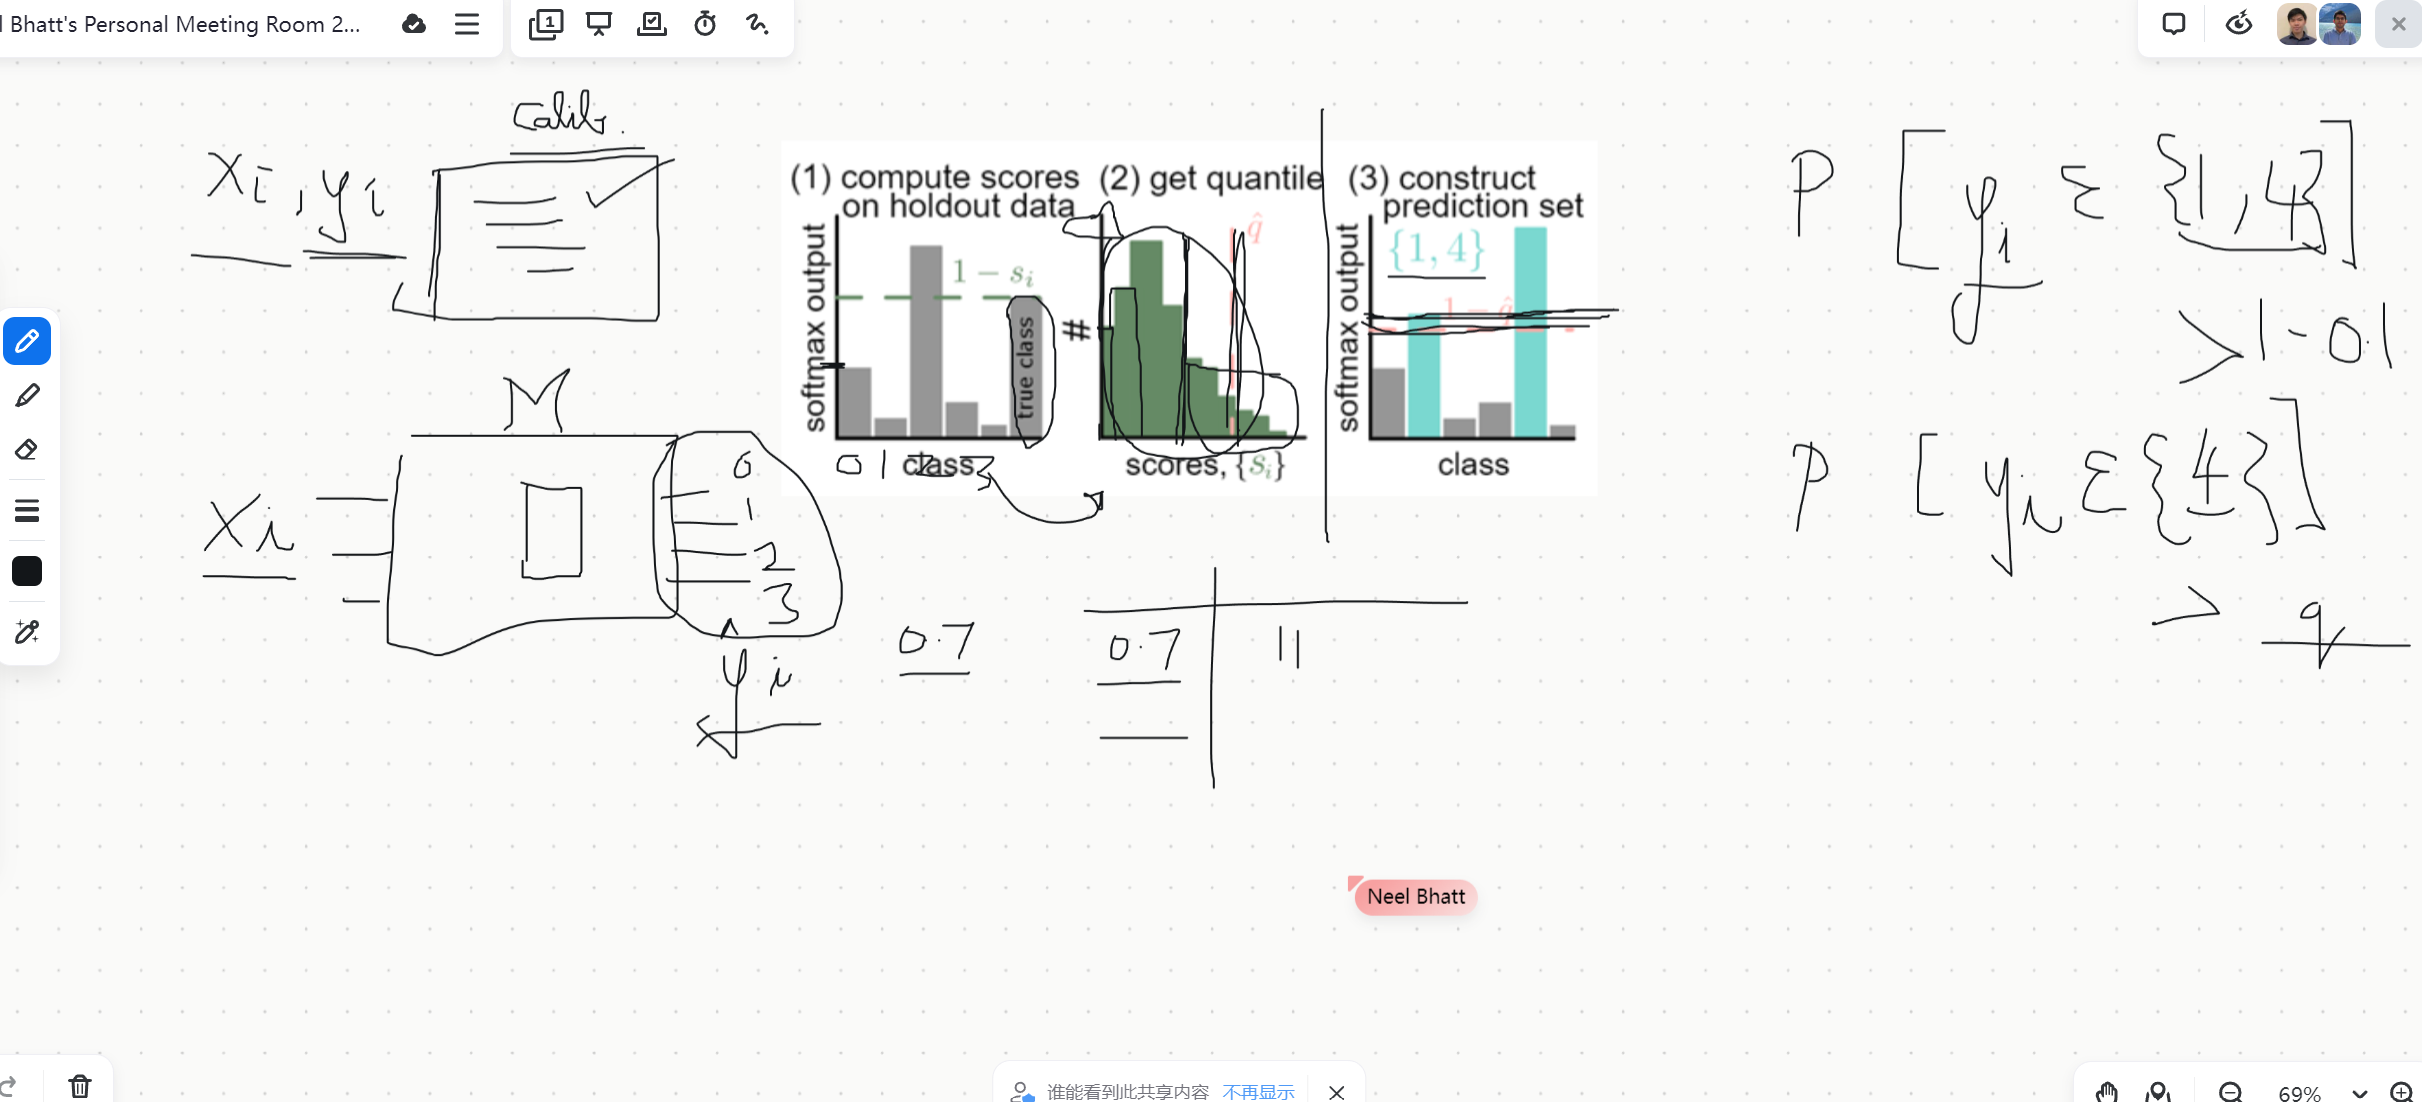 l Bhatt's Personal Meeting Room 2...
1
Calib.
Xi, yi
M
Xi
0
1
2
3
ŷi
(1) compute scores
on holdout data
softmax output
1 − si
true class
class
0 1 2 3
(2) get quantile
#
q̂
scores, {si}
(3) construct
prediction set
softmax output
{1, 4}
1 − q̂
class
0.7
0.7 11
P [yi ε {1, 4}]
> 1 - 0.1
P [yi ε {4}]
> q
Neel Bhatt
谁能看到此共享内容 不再显示
69%